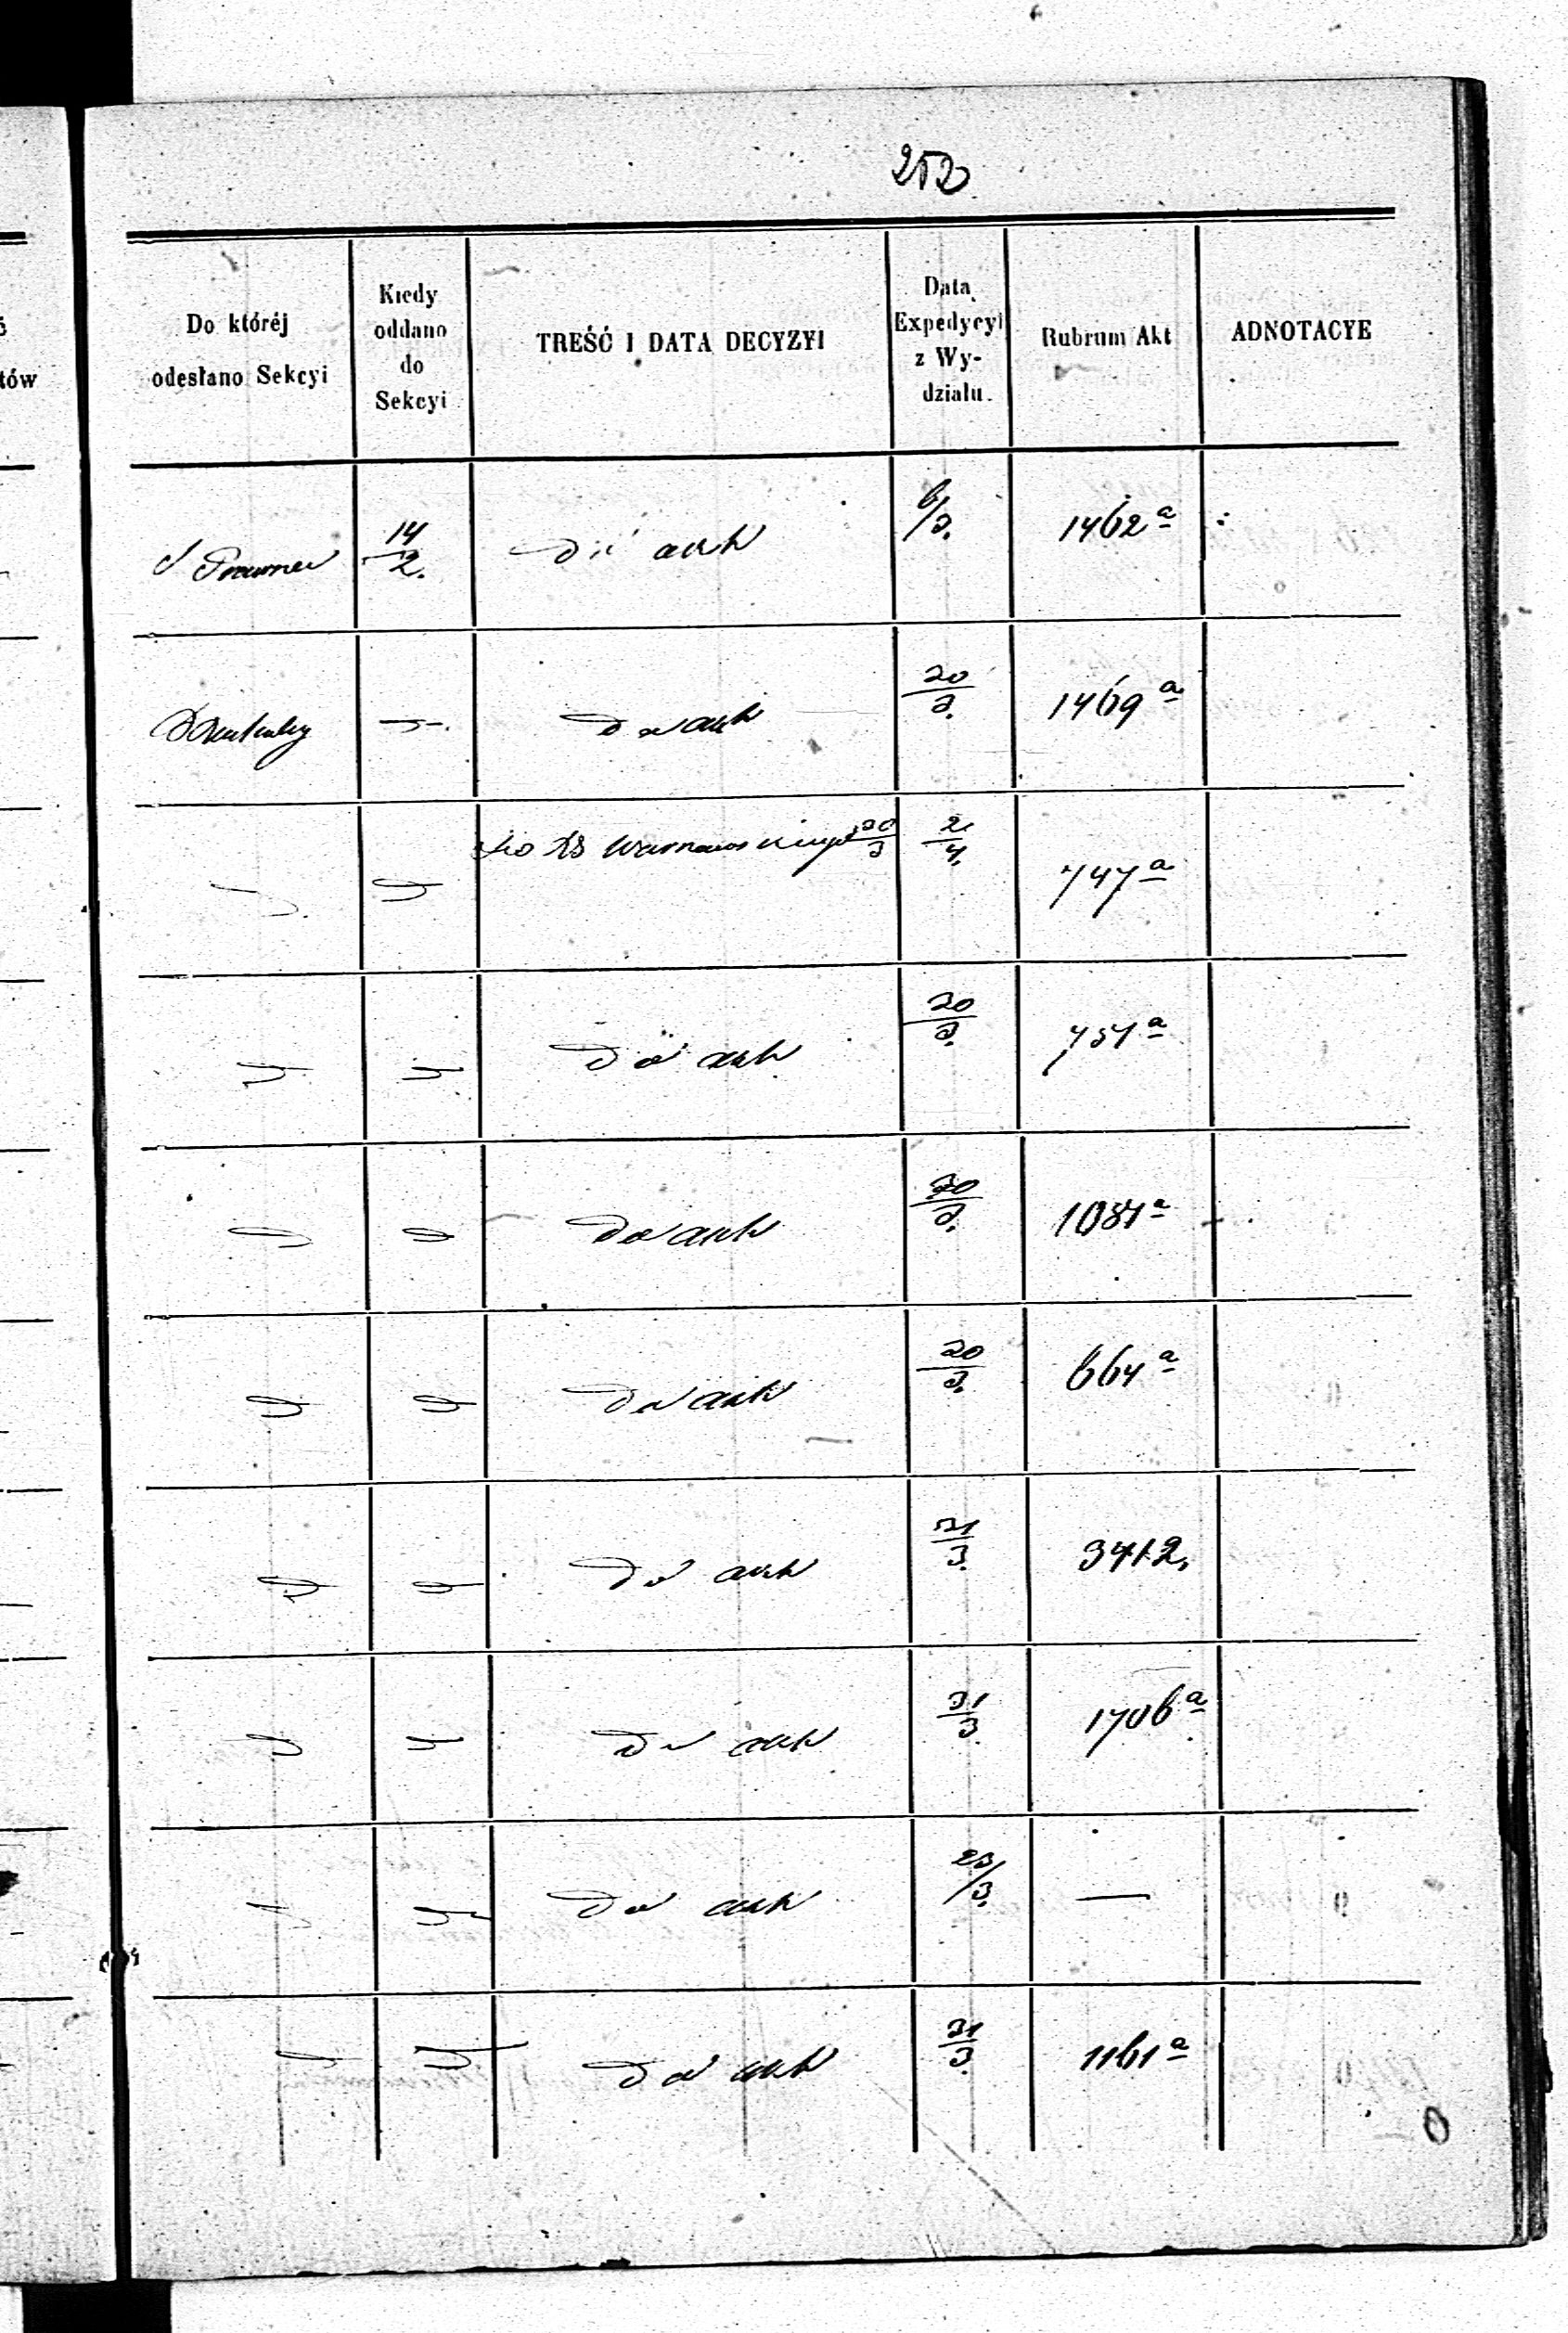 252
Do któréj odesłano Sekcyi
Kiedy oddano do Sekcyi
TREŚĆ I DATA DECYZYI
Data Expedycyi z Wy-działu.
Rubrum Akt
ADNOTACYE
14/2. do akt 6/3. 1462 a
do akt 20/3. 1469 a
20/3 2/4. 747 a
do akt 20/3. 757 a
do akt 20/3. 1087 a
do akt 20/3. 664 a
do akt 21/3. 3412.
do akt 31/3. 1706 a
do akt 23/3. —
do akt 31/3. 1161 a